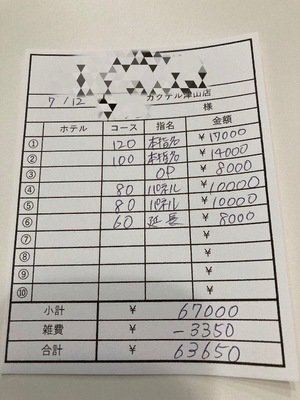 カクテル津山店
7/12 様
ホテル コース 指名 金額
① 120 本指名 ¥17000
② 100 本指名 ¥14000
③ OP ¥8000
④ 80 パネル ¥10000
⑤ 80 パネル ¥10000
⑥ 60 延長 ¥8000
⑦ ¥
⑧ ¥
⑨ ¥
⑩ ¥
小計 ¥ 67000
雑費 ¥ -3350
合計 ¥ 63650